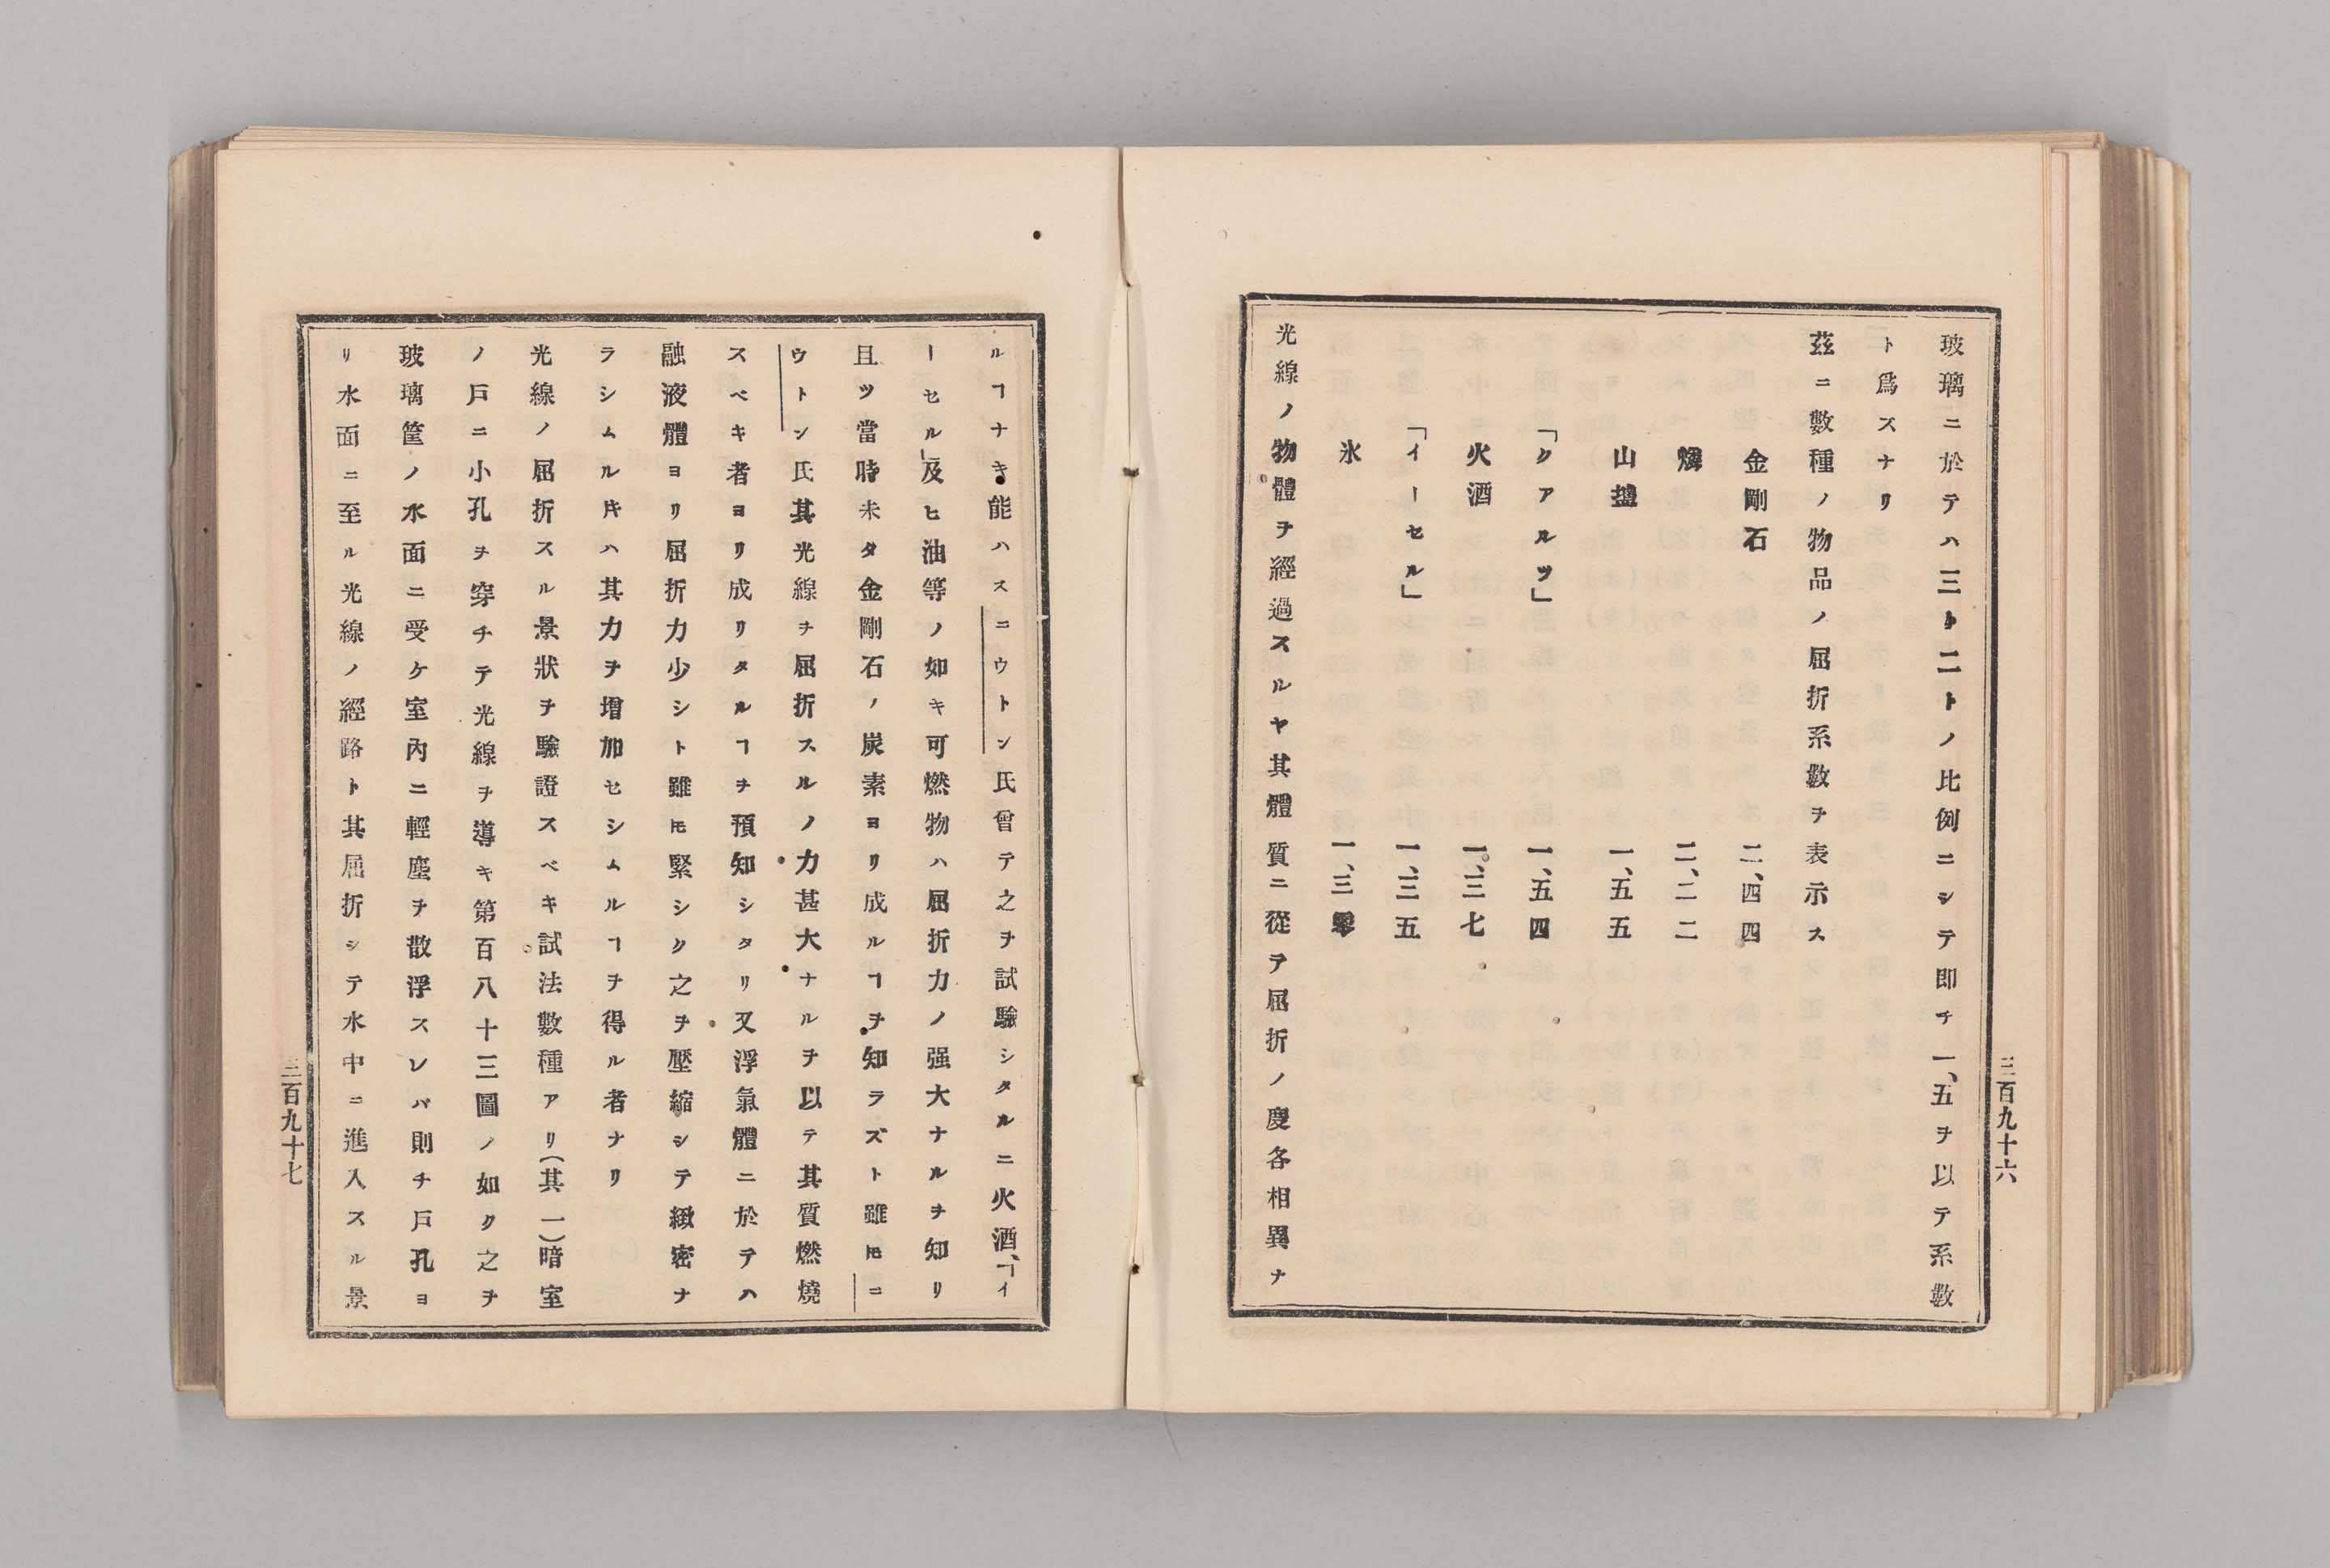 玻璃ニ於テハ三ト二トノ比例ニシテ即チ一、五ヲ以テ系數
ト爲スナリ
茲ニ數種ノ物品ノ屈折系數ヲ表示ス
金剛石 二、四四
燐 二、二二
山鹽 一、五五
「クアルツ」 一、五四
火酒 一、三七
「イーセル」 一、三五
氷 一、三零
光線ノ物體ヲ經過スルヤ其體質ニ從テ屈折ノ度各相異ナ
三百九十六
ルヿナキ能ハスニウトン氏曾テ之ヲ試驗シタルニ火酒、「イ
ーセル」及ヒ油等ノ如キ可燃物ハ屈折力ノ强大ナルヲ知リ
且ツ當時未タ金剛石ノ炭素ヨリ成ルヿヲ知ラズト雖𪜈ニ
ウトン氏其光線ヲ屈折スルノ力甚大ナルヲ以テ其質燃燒
スベキ者ヨリ成リタルヿヲ預知シタリ又浮氣體ニ於テハ
融液體ヨリ屈折力少シト雖𪜈緊シク之ヲ壓縮シテ緻密ナ
ラシムル片ハ其力ヲ增加セシムルヿヲ得ル者ナリ
光線ノ屈折スル景狀ヲ驗證スベキ試法數種アリ(其一)暗室
ノ戶ニ小孔ヲ穿チテ光線ヲ導キ第百八十三圖ノ如ク之ヲ
玻璃筐ノ水面ニ受ケ室內ニ輕塵ヲ散浮スレバ則チ戶孔ヨ
リ水面ニ至ル光線ノ經路ト其屈折シテ水中ニ進入スル景
三百九十七